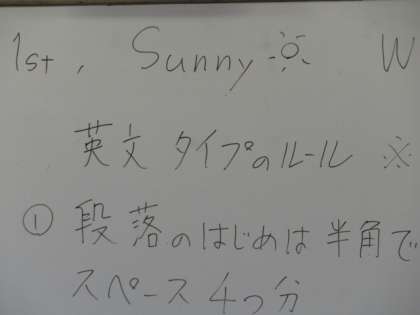 1st, Sunny W
英文タイプのルール ※
① 段落のはじめは半角で
スペース4つ分